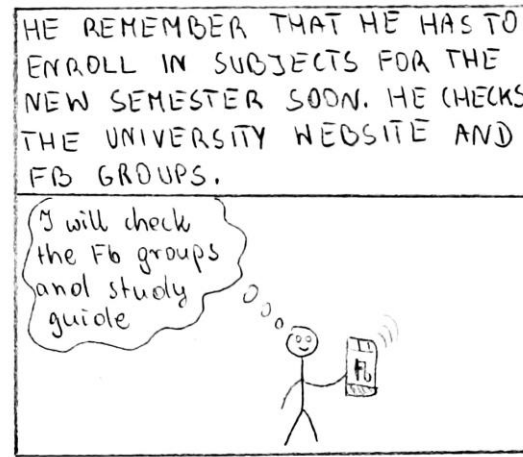 HE REMEMBER THAT HE HAS TO
ENROLL IN SUBJECTS FOR THE
NEW SEMESTER SOON. HE CHECKS
THE UNIVERSITY WEBSITE AND
FB GROUPS.
I will check
the Fb groups
and study
guide
Fb